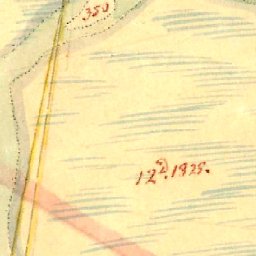 350
1 2d. 1929.